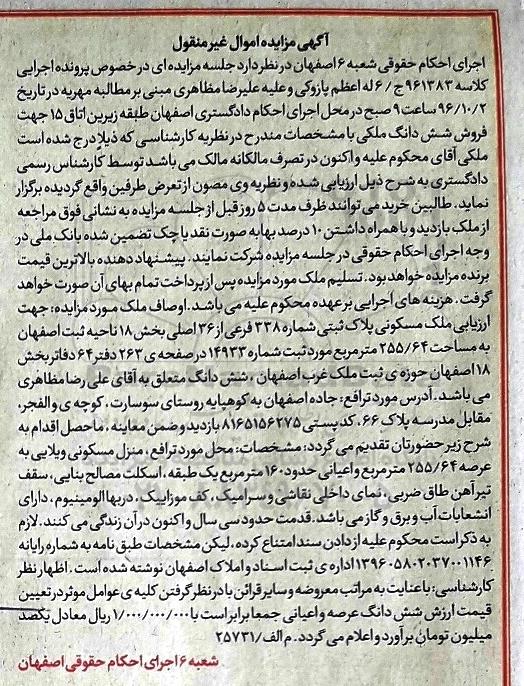 آگهی مزایده اموال غیر منقول
اجرای احکام حقوقی شعبه ۶ اصفهان در نظر دارد جلسه مزایده ای در خصوص پرونده اجرایی
کلاسه ۹۶۱۳۸۳ج/۶ له اعظم پازوکی و علیه علیرضا مظاهری مبنی بر مطالبه مهریه در تاریخ
۹۶/۱۰/۲ ساعت ۹ صبح در محل اجرای احکام دادگستری اصفهان طبقه زیرین اتاق ۱۵ جهت
فروش شش دانگ ملکی با مشخصات مندرج در نظریه کارشناسی که ذیلا درج شده است
ملکی آقای محکوم علیه و اکنون در تصرف مالکانه مالک می باشد توسط کارشناس رسمی
دادگستری به شرح ذیل ارزیابی شده و نظریه وی مصون از تعرض طرفین واقع گردیده برگزار
نماید. طالبین خرید می توانند ظرف مدت ۵ روز قبل از جلسه مزایده به نشانی فوق مراجعه
از ملک بازدید و با همراه داشتن ۱۰ درصد بها به صورت نقد یا چک تضمین شده بانک ملی در
وجه اجرای احکام حقوقی در جلسه مزایده شرکت نمایند. پیشنهاد دهنده بالاترین قیمت
برنده مزایده خواهد بود. تسلیم ملک مورد مزایده پس از پرداخت تمام بهای آن صورت خواهد
گرفت. هزینه های اجرایی بر عهده محکوم علیه می باشد. اوصاف ملک مورد مزایده: جهت
ارزیابی ملک مسکونی پلاک ثبتی شماره ۳۳۸ فرعی از ۳۶ اصلی بخش ۱۸ ناحیه ثبت اصفهان
به مساحت ۲۵۵/۶۴ متر مربع مورد ثبت شماره ۱۴۹۳۳ در صفحه ی ۲۶۳ دفتر ۶۴ دفاتر بخش
۱۸ اصفهان حوزه ی ثبت ملک غرب اصفهان، شش دانگ متعلق به آقای علی رضا مظاهری
می باشد. آدرس مورد ترافع: جاده اصفهان به کوهپایه روستای سوسارت، کوچه ی والفجر،
مقابل مدرسه پلاک ۶۶، کد پستی ۸۱۶۵۱۵۶۲۷۵ بازدید و ضمن معاینه، ماحصل اقدام به
شرح زیر حضورتان تقدیم می گردد: مشخصات: محل مورد ترافع، منزل مسکونی ویلایی به
عرصه ۲۵۵/۶۴ متر مربع و اعیانی حدود ۱۶۰ متر مربع یک طبقه، اسکلت مصالح بنایی، سقف
تیرآهن طاق ضربی، نمای داخلی نقاشی و سرامیک، کف موزاییک، درب ها الومینیوم، دارای
انشعابات آب و برق و گاز می باشد. قدمت حدود سی سال و اکنون در آن زندگی می کنند. لازم
به ذکر است محکوم علیه از دادن سند امتناع کرده، لیکن مشخصات طبق نامه به شماره رایانه
۱۳۹۶۰۵۸۰۲۰۳۷۰۰۱۱۴۶ اداره ی ثبت اسناد و املاک اصفهان نوشته شده است. اظهار نظر
کارشناسی: با عنایت به مراتب معروضه و سایر قرائن با در نظر گرفتن کلیه ی عوامل موثر در تعیین
قیمت ارزش شش دانگ عرصه و اعیانی جمعا برابر است با ۱/۰۰۰/۰۰۰/۰۰۰ ریال معادل یکصد
میلیون تومان برآورد و اعلام می گردد. م الف/۲۵۷۳۱
شعبه ۶ اجرای احکام حقوقی اصفهان